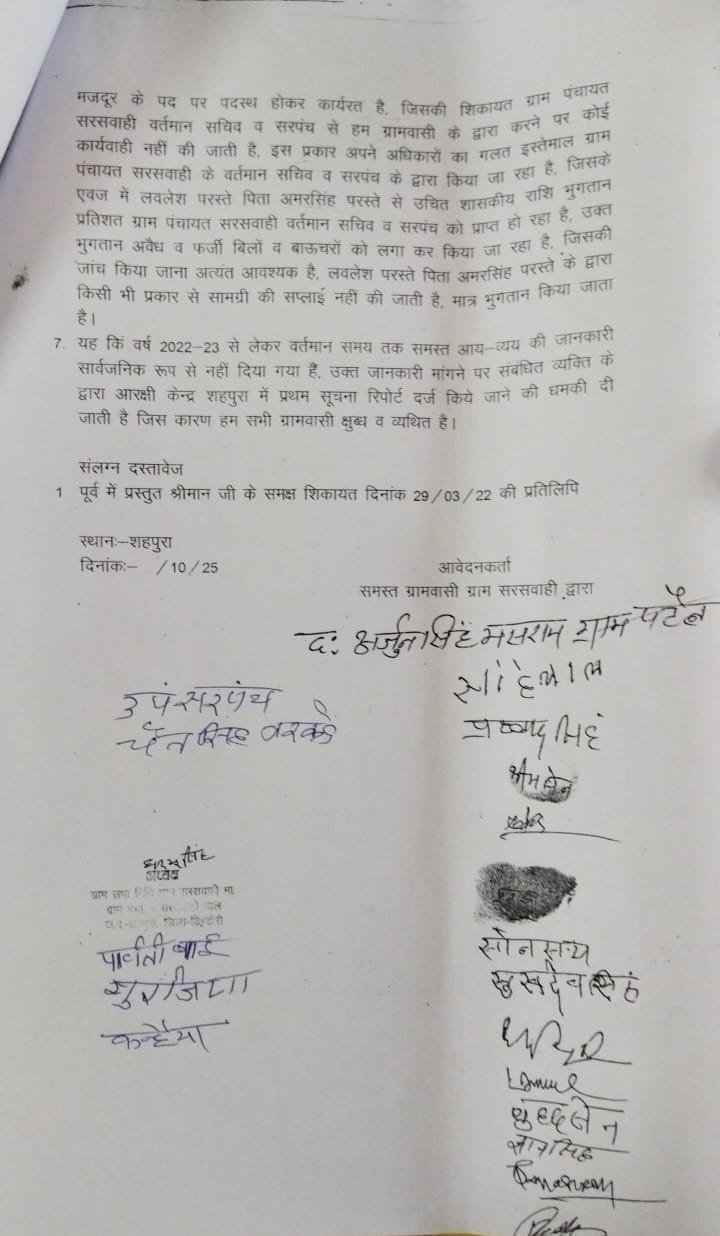 मजदूर के पद पर पदस्थ होकर कार्यरत है, जिसकी शिकायत ग्राम पंचायत
सरसवाही वर्तमान सचिव व सरपंच से हम ग्रामवासी के द्वारा करने पर कोई
कार्यवाही नहीं की जाती है, इस प्रकार अपने अधिकारों का गलत इस्तेमाल ग्राम
पंचायत सरसवाही के वर्तमान सचिव व सरपंच के द्वारा किया जा रहा है, जिसके
एवज में लवलेश परस्ते पिता अमरसिंह परस्ते से उचित शासकीय राशि भुगतान
प्रतिशत ग्राम पंचायत सरसवाही वर्तमान सचिव व सरपंच को प्राप्त हो रहा है, उक्त
भुगतान अवैध व फर्जी बिलों व बाऊचरों को लगा कर किया जा रहा है, जिसकी
जांच किया जाना अत्यंत आवश्यक है, लवलेश परस्ते पिता अमरसिंह परस्ते के द्वारा
किसी भी प्रकार से सामग्री की सप्लाई नहीं की जाती है, मात्र भुगतान किया जाता
है।
7. यह कि वर्ष 2022–23 से लेकर वर्तमान समय तक समस्त आय–व्यय की जानकारी
सार्वजनिक रूप से नहीं दिया गया हैं, उक्त जानकारी मांगने पर संबंधित व्यक्ति के
द्वारा आरक्षी केन्द्र शहपुरा में प्रथम सूचना रिपोर्ट दर्ज किये जाने की धमकी दी
जाती है जिस कारण हम सभी ग्रामवासी क्षुब्ध व व्यथित है।
संलग्न दस्तावेज
1 पूर्व में प्रस्तुत श्रीमान जी के समक्ष शिकायत दिनांक 29/03/22 की प्रतिलिपि
स्थानः–शहपुरा
दिनांकः– /10/25
आवेदनकर्ता
समस्त ग्रामवासी ग्राम सरसवाही द्वारा
द: अर्जुनसिंह मसराम ग्राम पटैल
उपसरपंच
चैनसिंह वरकडे
प्रहलाद सिंह
अध्यक्ष
पार्वती बाई
कन्हैया
सोनसाय
सुखदेव सिंह